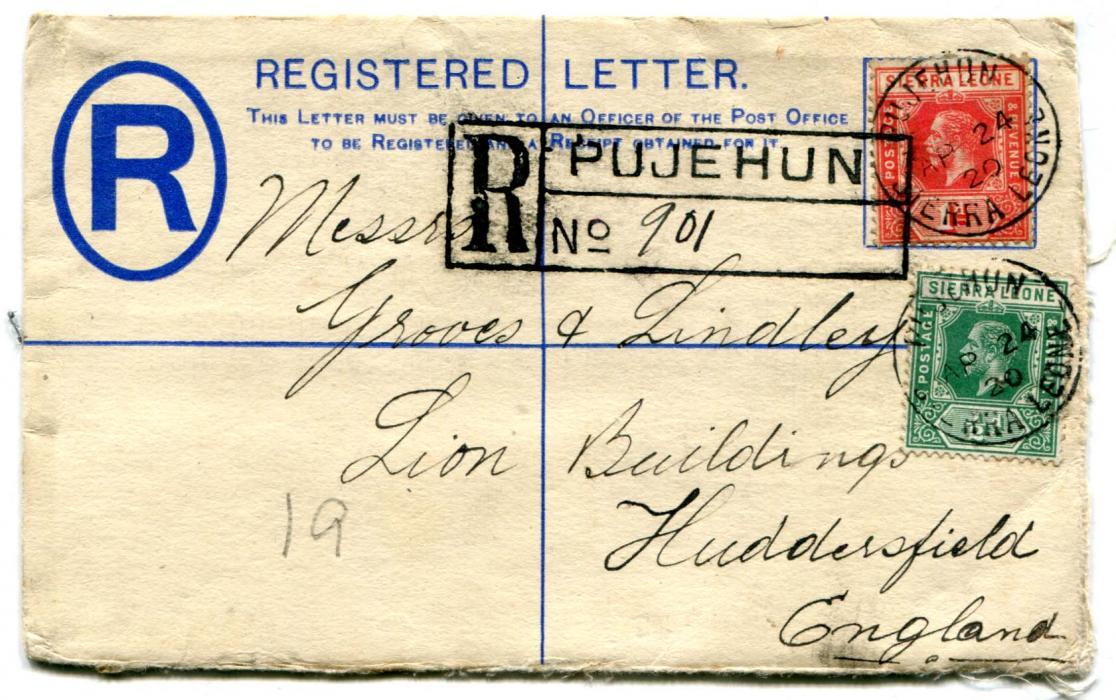 R
REGISTERED LETTER.
THIS LETTER MUST BE GIVEN TO AN OFFICER OF THE POST OFFICE
TO BE REGISTERED AND A RECEIPT OBTAINED FOR IT.
R
PUJEHUN
No 901
SIERRA LEONE
POSTAGE
& REVENUE
PUJEHUN
AP 24
20
SIERRA LEONE
Messrs
Groves & Lindley
Lion Buildings
Huddersfield
England
SIERRA LEONE
POSTAGE
PUJEHUN
AP 24
20
SIERRA LEONE
19